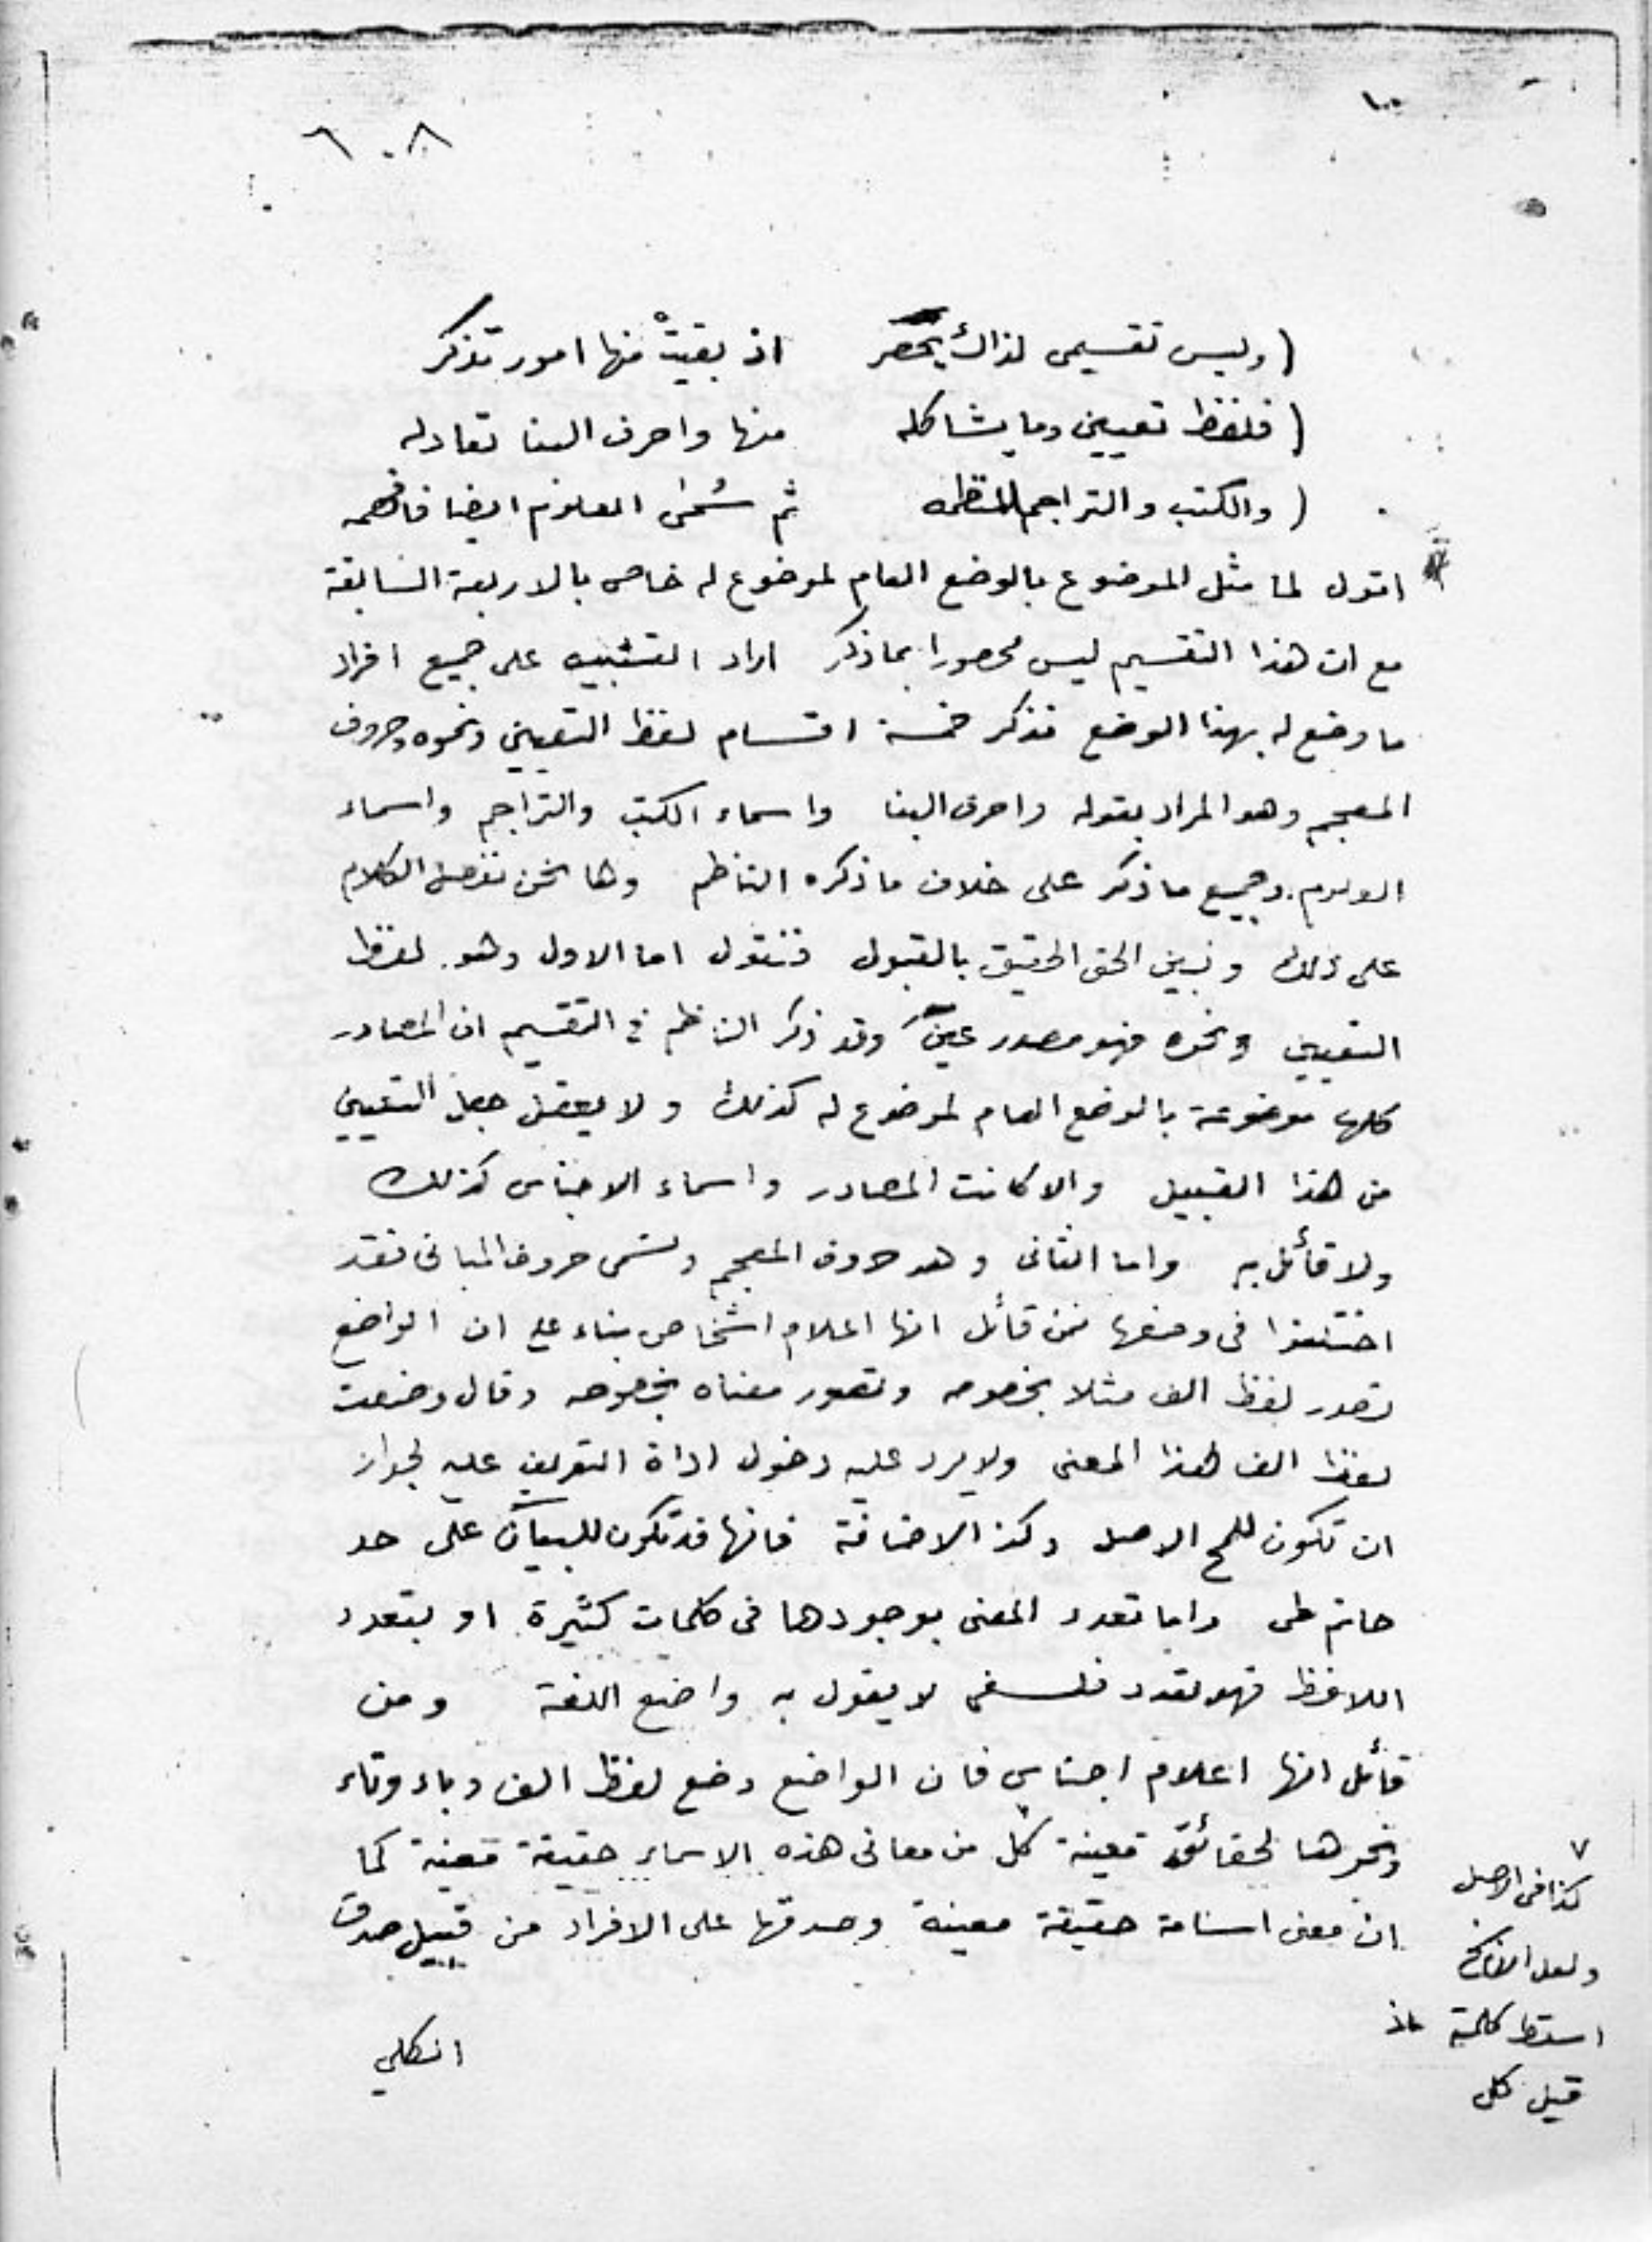 ٦٠٨
(وليس تقسيمى لذاك يحصر اذ بقيت منها امور تذكر
(فلفظ تعيين وما يشاكله منها واحرف البنا تعادله
(والكتب والتراجم المنتظمه ثم العلوم ايضا فافهمه
اقول لما مثل الموضوع بالوضع العام لموضوع له خاص بالاربعة السابقة
مع ان هذا التقسيم ليس محصورا بما ذكر اراد التنبيه على جميع افراد
ما وضع له بهذا الوضع فذكر خمسة اقسام لفظ التعيين ونحوه وحروف
المعجم وهو المراد بقوله واحرف البنا واسماء الكتب والتراجم واسماء
العلوم. وجميع ما ذكر على خلاف ما ذكره الناظم وها نحن نفصل الكلام
على ذلك ونبين الحق الحقيق بالقبول فنقول اما الاول وهو لفظ
التعيين ونحوه فهو مصدر عيّن وقد ذكر الناظم في التقسيم ان المصادر
كلها موضوعة بالوضع العام لموضوع له كذلك ولا يعقل جعل التعيين
من هذا القبيل والا كانت المصادر واسماء الاجناس كذلك
ولا قائل به واما الثانى وهو حروف المعجم وتسمى حروف المبانى فقد
اختلفوا فى وضعها فمن قائل انها اعلام اشخاص بناء على ان الواضع
تصور لفظ الف مثلا بخصوصه وتصور معناه بخصوصه وقال وضعت
لفظ الف لهذا المعنى ولا يرد عليه دخول اداة التعريف عليه لجواز
ان تكون للمح الاصل وكذ الاضافة فانها قد تكون للبيان على حد
حاتم طى واما تعدد المعنى بوجودها فى كلمات كثيرة او بتعدد
اللافظ فهو تعدد فلسفى لا يقول به واضع اللغة ومن
قائل انها اعلام اجناس فان الواضع وضع لفظ الف وباء وتاء
ونحوها لحقائق معينة كل من معانى هذه الاسماء حقيقة معينة كما
ان معنى اسامة حقيقة معينة وصدقها على الافراد من قبيل صدق
الكلي
٧
كذا فى الاصل
ولعل الناسخ
اسقط كلمة اذ
قبل كل